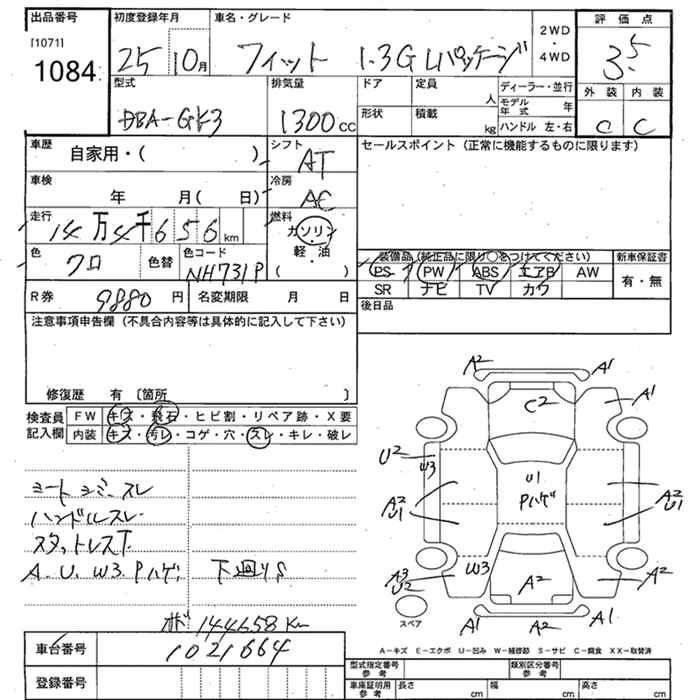 出品番号 初度登録年月 車名・グレード 2WD・4WD 評価点
[1071]
1084 25 10月 フィット 1.3G Lパッケージ 3.5
型式 排気量 ドア 定員 人 ディーラー・並行 外装 内装
DBA-GK3 1300cc 形状 積載 kg モデル年式 年 C C
ハンドル 左・右
車歴 自家用・( ) シフト AT セールスポイント（正常に機能するものに限ります）
車検 年 月( 日) 冷房 AC
走行 14万4千656km 燃料 ガソリン・軽・油 ( )
色 クロ 色替 色コード NH731P
装備品（純正品に限り○をつけてください） 新車保証書
PS PW ABS エアB AW 有・無
SR ナビ TV カワ
R券 9880円 名変期限 月 日 後日品
注意事項申告欄（不具合内容等は具体的に記入して下さい）
修復歴 有〔箇所 〕
検査員記入欄 FW キズ・飛石・ヒビ割・リペア跡・X要
内装 キズ・汚レ・コゲ・穴・スレ・キレ・破レ
A2 A1
C2 A1
U2 W3 U1 Pハゲ
A2 U1 A2 U1
A3 U2 W3 A2 A2
スペア A1 A2 A1
ハンドルスレ
スタットレスT
A.U.W3.Pハゲ 下廻りS
144658Km
A－キズ E－エクボ U－凹み W－補修跡 S－サビ C－腐食 XX－取替済
車台番号 1021664
型式指定番号 参考 類別区分番号 参考
登録番号
車庫証明用 参考 長さ cm 幅 cm 高さ cm